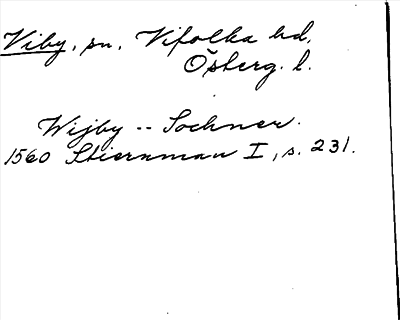 Viby, sn, Vifolka hd,
Österg. l.
Wijby -- Sochner.
1560 Stiernman I, s. 231.